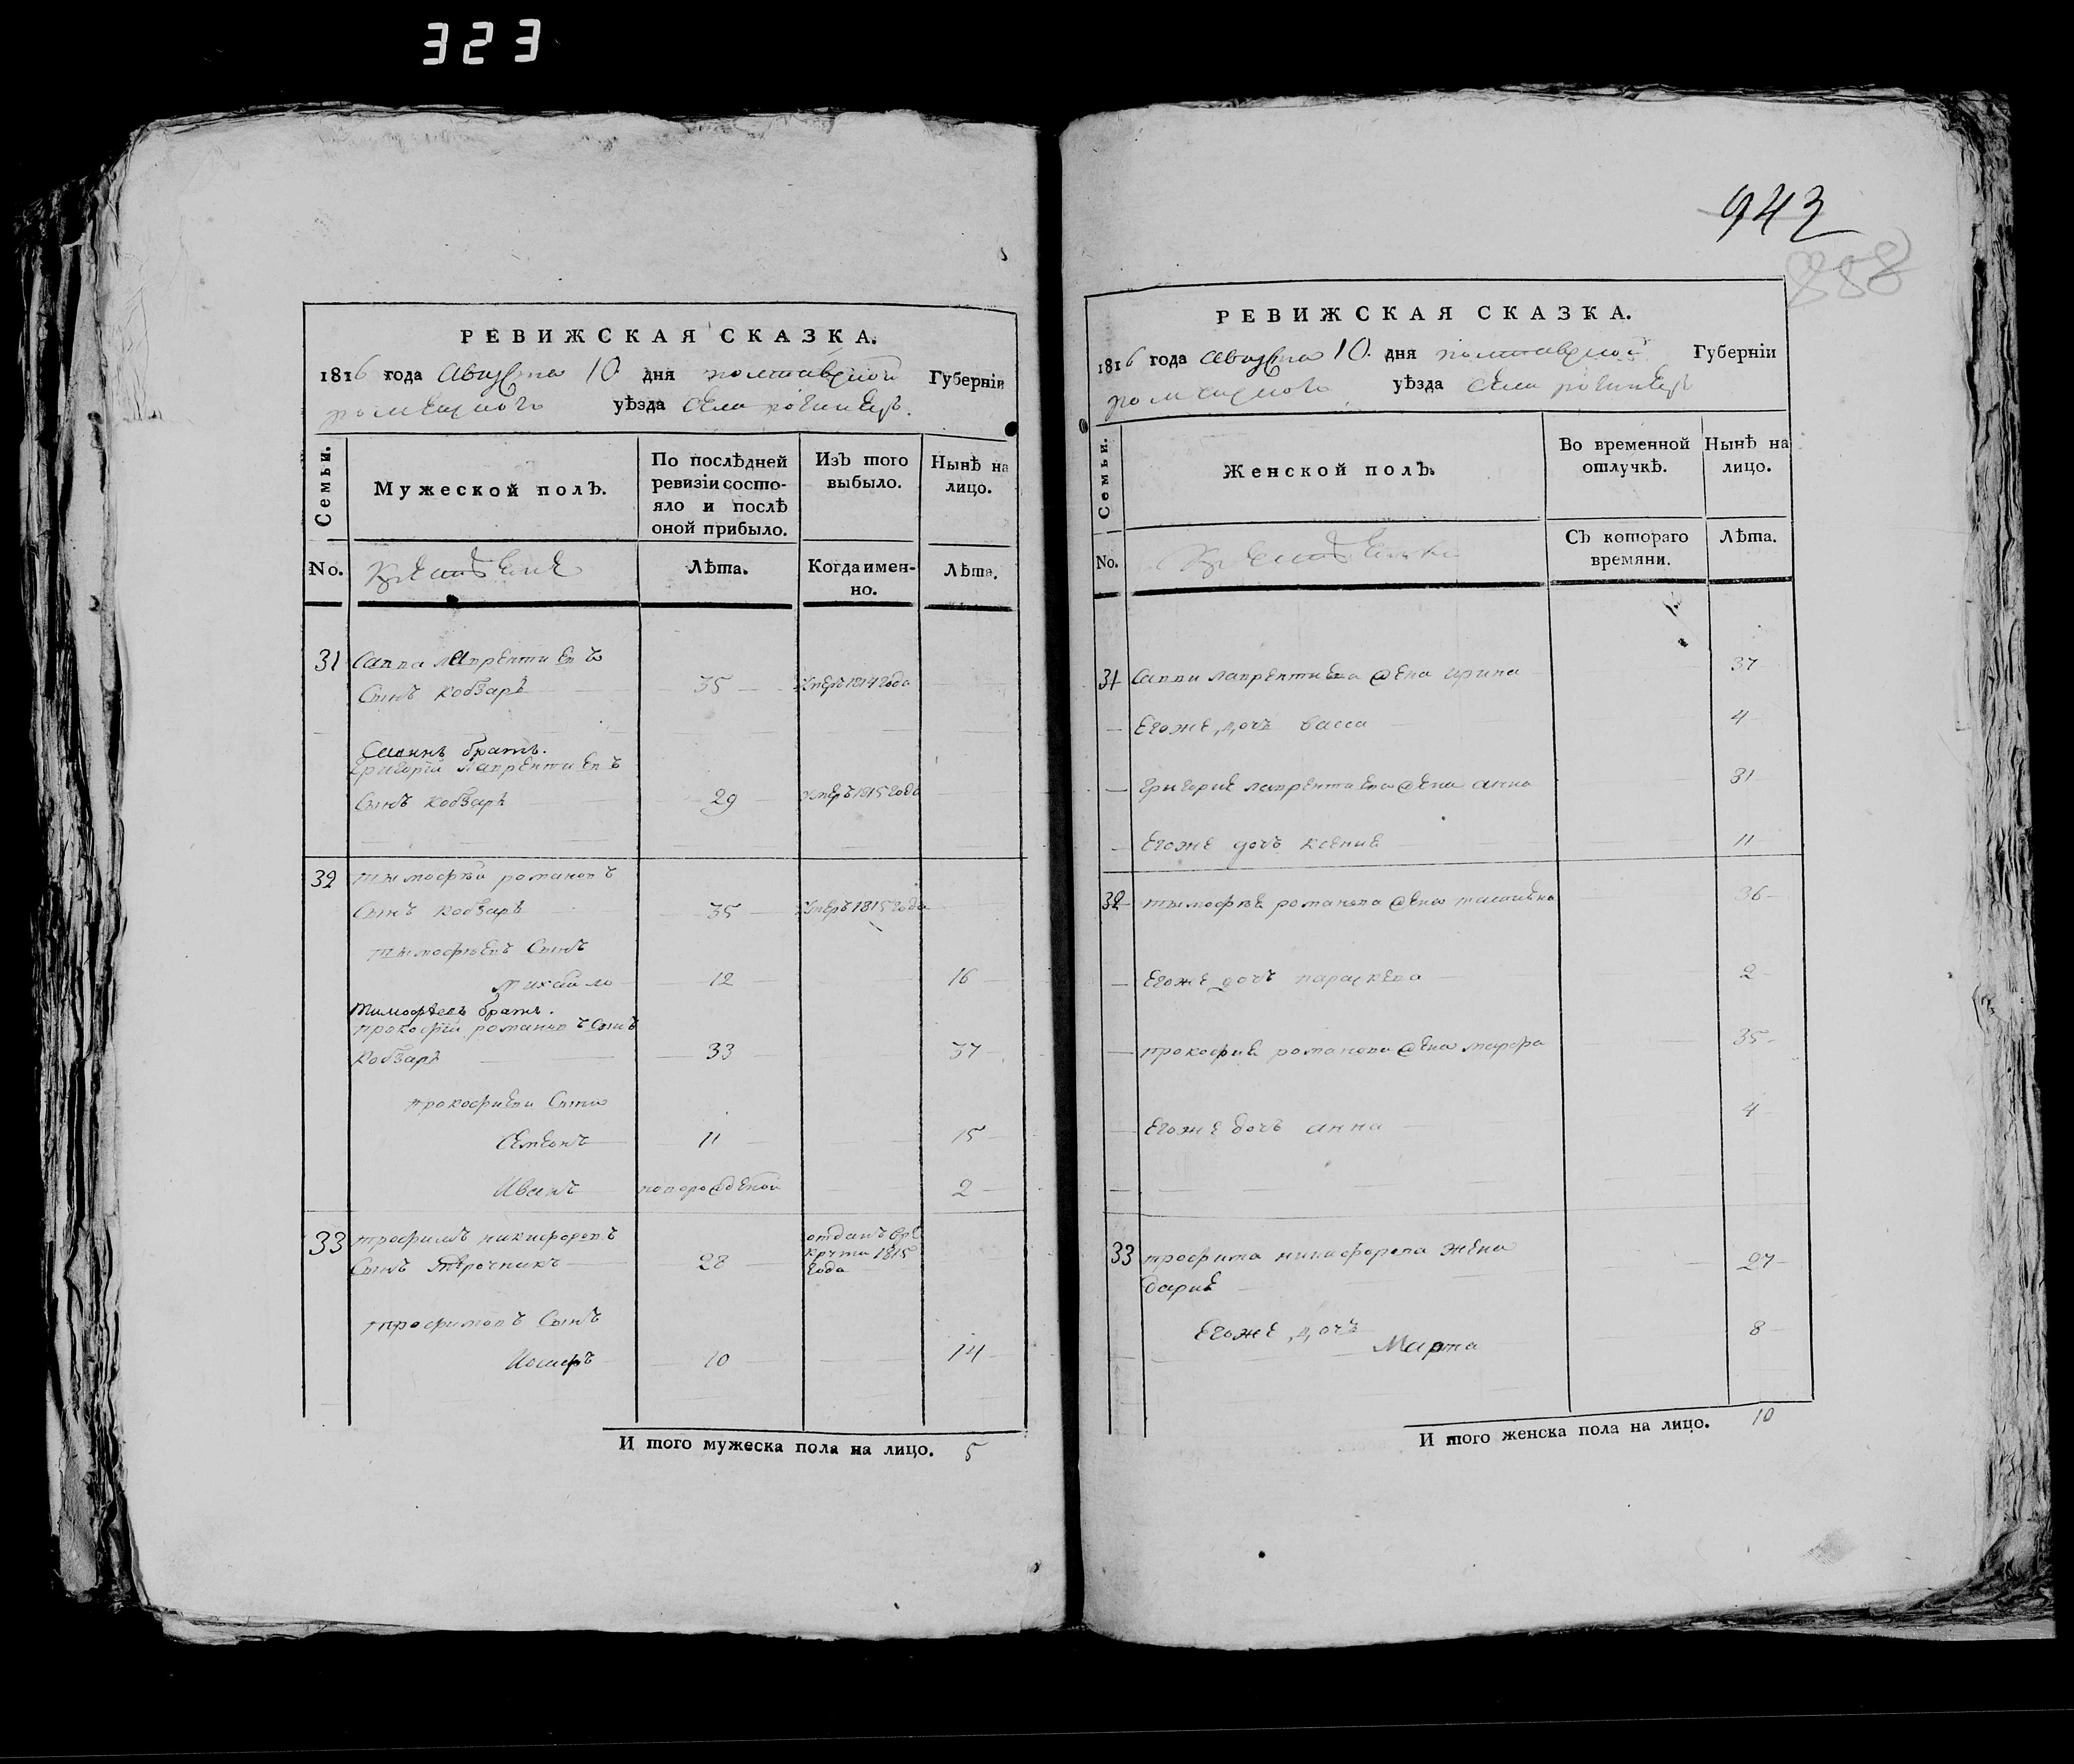 323
943
888
РЕВИЖСКАЯ СКАЗКА.
1816 года Августа 10 дня полтавской Губернiи
роменского уѣзда Села рогинецъ.
Семьи.
Мужеской полъ.
По послѣдней ревизiи состо-
яло и послѣ
оной прибыло.
Изъ того
выбыло.
Нынѣ на
лицо.
No.
Крестьяне
Лѣта.
Когда имен-
но.
Лѣта.
31 Савва лаврентиевъ
Сынъ кобзарь 35 умеръ 1814 года
Саввинъ братъ.
григорiй лаврентиевъ
Сынъ кобзарь 29 умеръ 1815 года
32 тымофѣй романовъ
Сынъ кобзарь 35 умеръ 1815 года
тымофѣевъ Сынъ
михайло 12 16
Тимофѣевъ братъ.
прокофiй романовъ Сынъ
кобзарь 33 37
прокофиеви Сыны
Семенъ 11 15
Иванъ новорожденой 2
33 трофимъ никифоровъ
Сынъ 28 отданъ в ре
круты 1815
года
трофимовъ Сынъ
Иосифъ 10 14
И того мужеска пола на лицо. 5
РЕВИЖСКАЯ СКАЗКА.
1816 года Августа 10. дня полтавской Губернiи
роменского уѣзда Села рогинецъ
Семьи.
Женской полъ.
Во временной
отлучкѣ.
Нынѣ на
лицо.
No.
Крестьянки
Съ котораго
времяни.
Лѣта.
31 Савви лаврентиева жена ирина 37
Егоже дочь васса 4
григорие лаврентиева жена анна 31
Егоже дочь ксение 11
32 тымофѣе романова жена татиена 36
Егоже дочь параскева 2
прокофие романова жена марфа 35
Егоже дочь анна 4
33 трофима никифорова жена
дарие 27
Егоже дочь
Марта 8
И того женска пола на лицо. 10